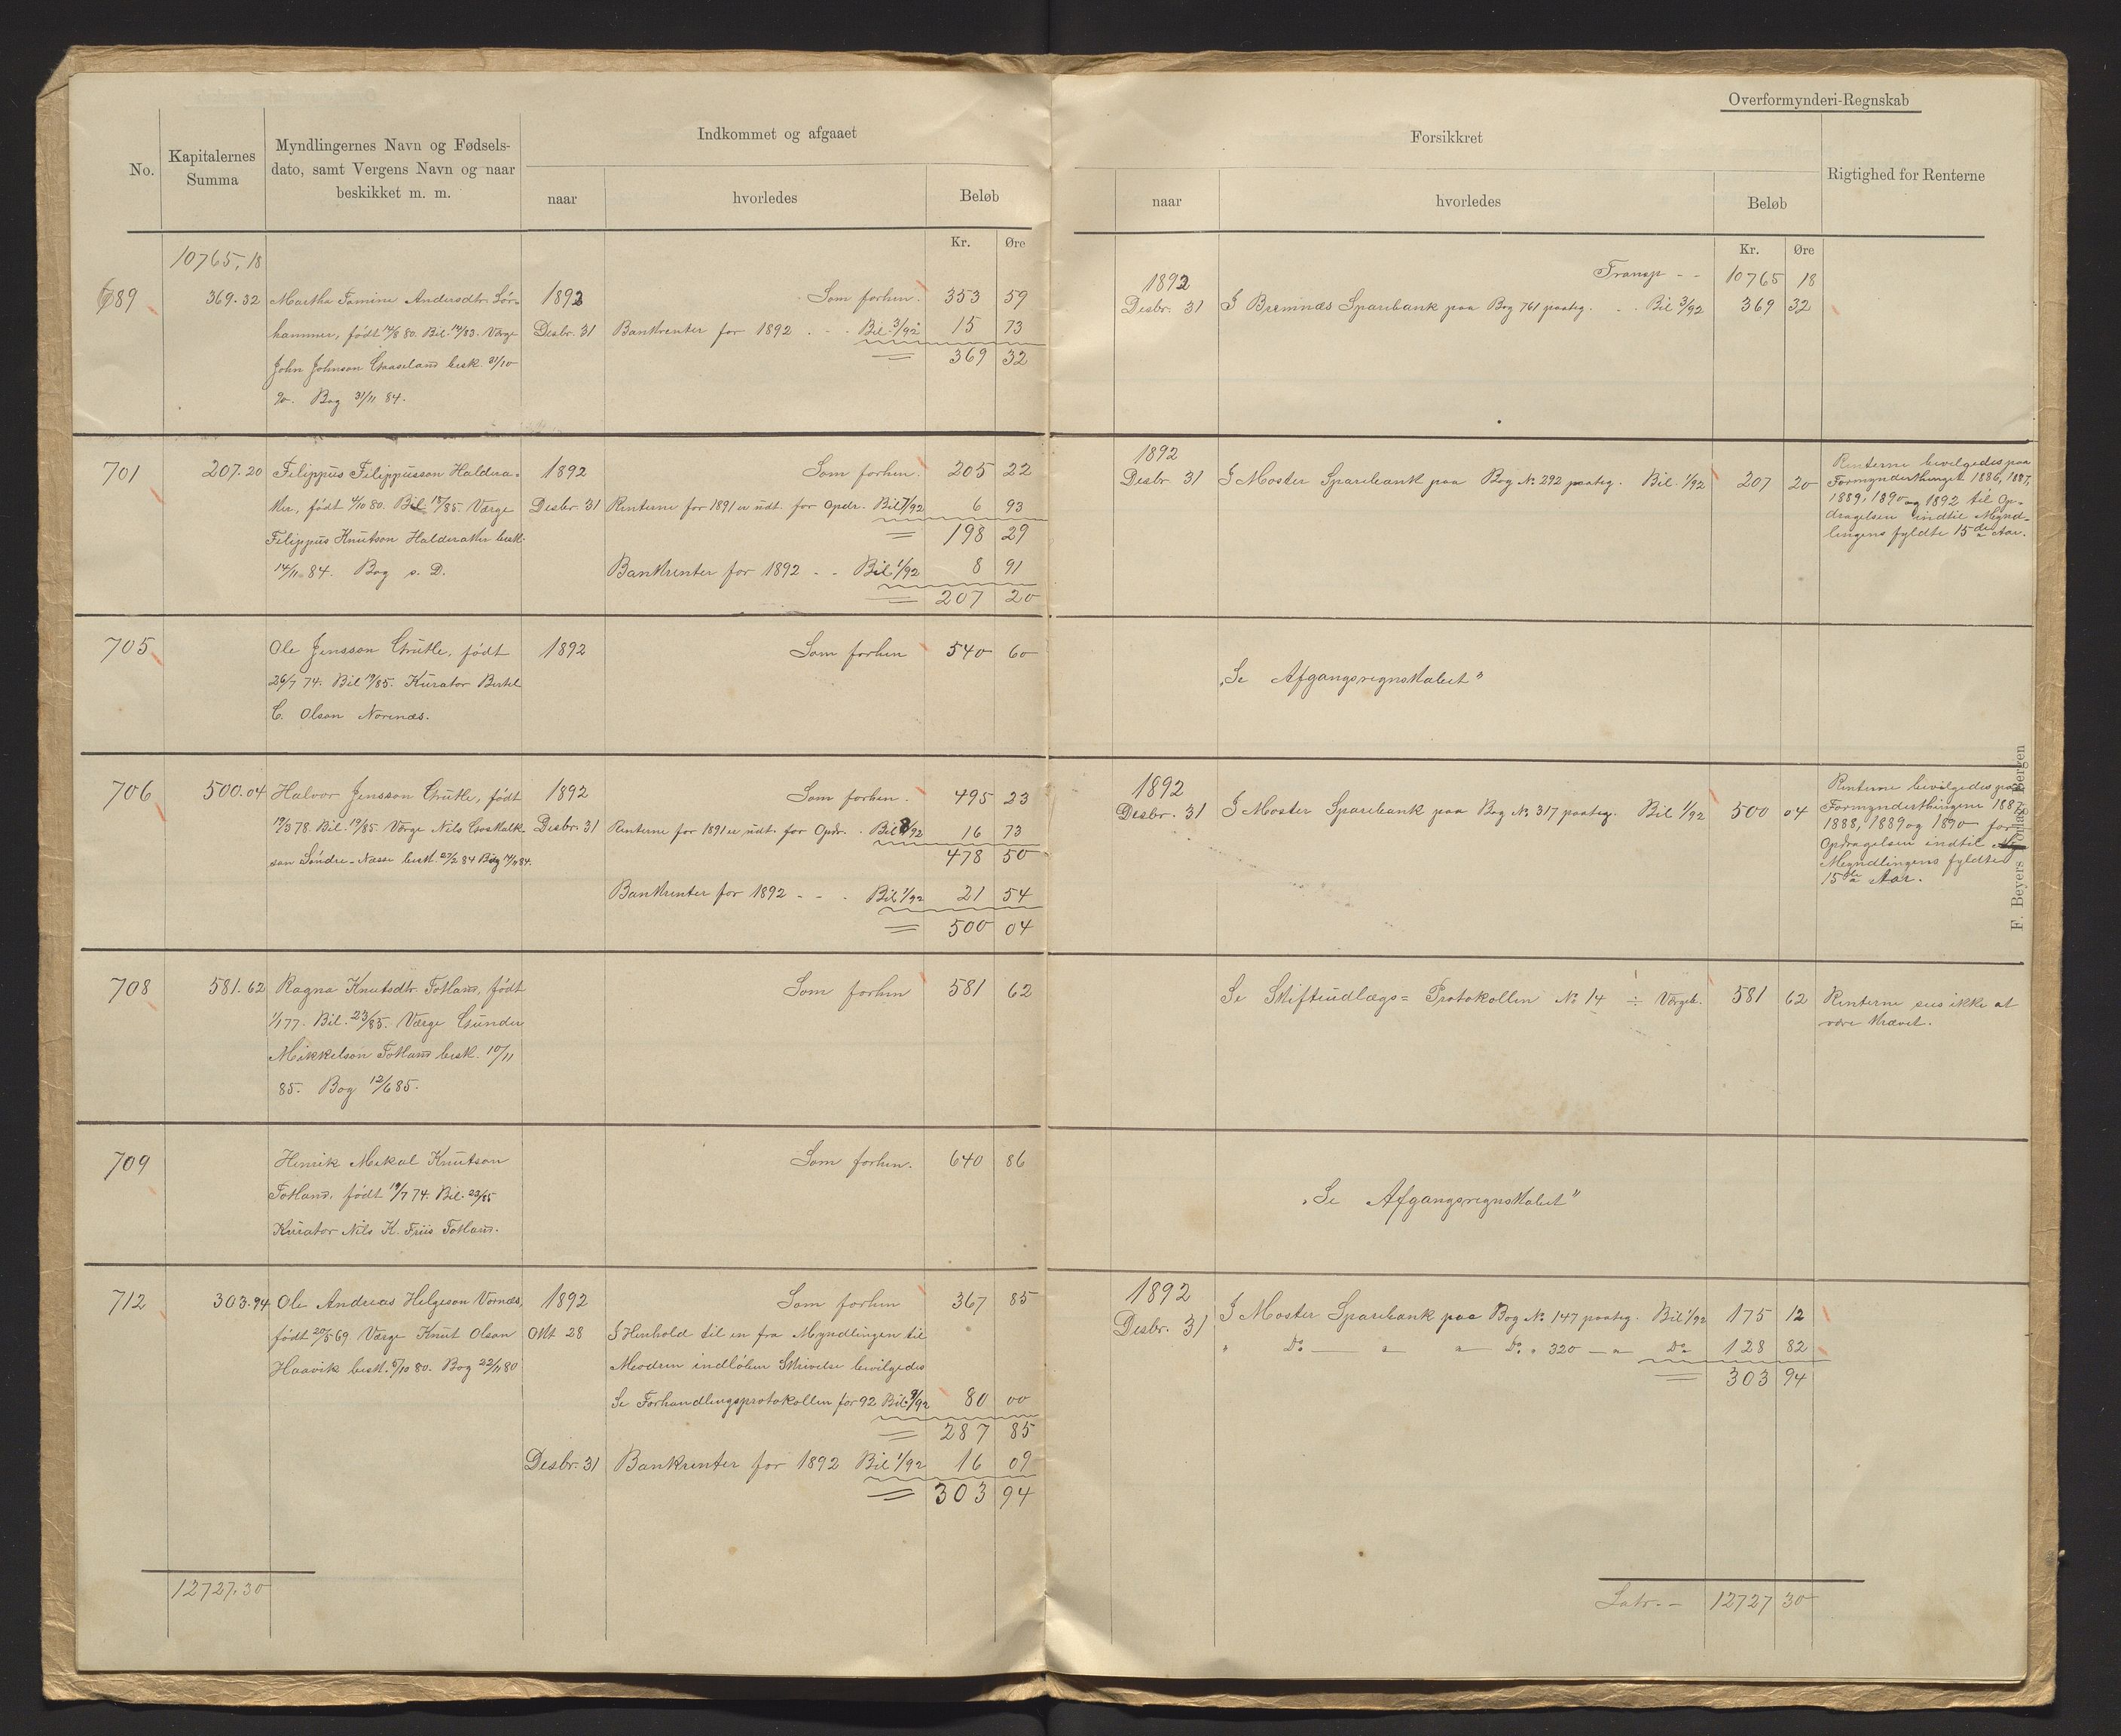 Overformynderi-Regnskab
No.
Kapitalernes Summa
Myndlingernes Navn og Fødsels-
dato, samt Vergens Navn og naar
beskikket m. m.
Indkommet og afgaaet
naar
hvorledes
Beløb
Kr. Øre
10765,18
689 369.32 Martha Tomine Andersdtr. Lør- 1892 Som forhen. 353 59
hammer, født 80. Bil. 14/83. Værge Desbr. 31 Bankrenter for 1892 . - - Bil. 3/92 15 73
John Johnson Gaaseland besk. 31/10 369 32
90. Bog 31/11 84.
701 207.20 Filippus Filippusson Haldera- 1892 Som forhen. 205 22
ker, født 4/10 80. Bil. 18/85. Værge Desbr. 31 Renterne for 1891 er udt. for Opdr. Bil 7/92 6 93
Filippus Knutson Halderaker besk. 198 29
14/11 84. Bog s. D. Bankrenter for 1892 - - Bil 1/92 8 91
207 20
705 Ole Jensson Grutle, født 1892 Som forhen 540 60
26/7 74. Bil 19/85. Kurator Bertel
C. Olson Nornæs.
706 500.04 Halvor Jensson Grutle, født 1892 Som forhen. 495 23
19/3 78. Bil. 19/85. Værge Nils Goskalk- Desbr. 31 Renterne for 1891 er udt. for Opdr. . Bil 8/92 16 73
son Søndre-Næsse besk. 27/2 84 Bog 14/11 84. 478 50
Bankrenter for 1892 - - . Bil 1/92 21 54
500 04
708 581.62 Ragna Knutsdtr. Fokland, født Som forhen 581 62
1/1 77. Bil. 23/85. Værge Gunder
Mikkelson Fokland besk. 10/11
85. Bog 12/6 85.
709 Henrik Mikal Knutson Som forhen. 640 86
Fokland, født 19/7 74. Bil. 23/85
Kurator Nils K. Friis Fokland.
712 303.94 Ole Andreas Helgeson Vornæs, 1892 Som forhen 367 85
født 20/5 69 Værge Knut Olson Okt 28 I Henhold til en fra Myndlingen til
Haavik besk. 5/10 80. Bog 22/11 80 Moderen indløben Skrivelse bevilgedes
Se Forhandlingsprotokollen for 92 Bil. 9/92 80 00
287 85
Desbr. 31 Bankrenter for 1892 Bil 1/92 16 09
303 94
12727.30
Forsikkret
naar
hvorledes
Beløb
Rigtighed for Renterne
Kr. Øre
Transp - - 10765 18
1892
Desbr. 31 I Bremnæs Sparebank paa Bog 761 paateg. . . Bil 3/92 369 32
1892
Desbr 31 I Moster Sparebank paa Bog No 292 paateg. Bil. 1/92 207 20
Renterne bevilgedes paa
Formynderthinget 1886, 1887,
1889, 1890 og 1892 til Op-
dragelsen indtil Mynd-
lingens fyldte 15de Aar.
„Se Afgangsregnskabet"
1892
Desbr. 31 I Moster Sparebank paa Bog No 317 paateg. Bil 1/92 500 04
Renterne bevilgedes paa
Formynderthingene 1887,
1888, 1889 og 1890 for
Opdragelsen indtil
Myndlingens fyldte
15de Aar.
Se Skifteudlægs= Protokollen No 14 ÷ Værgeb. 581 62
Renterne sees ikke at
være krævet.
„Se Afgangsregnskabet"
1892
Desbr. 31 I Moster Sparebank paa Bog No 147 paateg. Bil 1/92 175 12
" Do — " " Do " 320 — " Do 128 82
303 94
Latr. - 12727 30
F. Beyers Forlag, Bergen